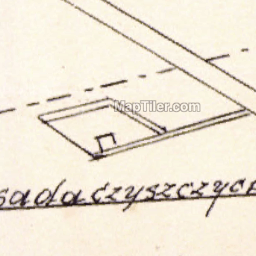 MapTiler.com
sadaczyszczyc